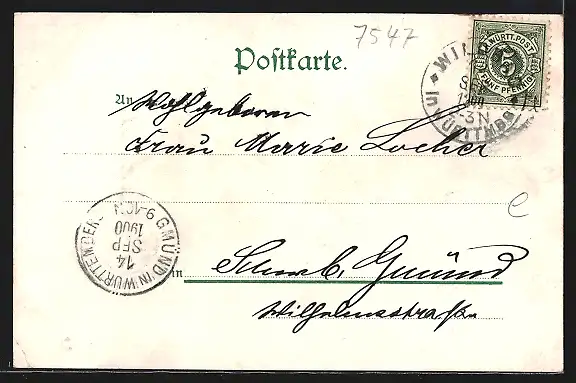 7547
Postkarte.
K. WÜRTT. POST
5
FÜNF PFENNIG
WIL
1900
-3 N
IN WÜRTTMBG
An Wohlgeboren
Frau Marie Locher
e
GMÜND IN WÜRTTEMBERG
14
SEP
1900
9-10 N
in Schwäb. Gmünd
Wilhelmsstraße